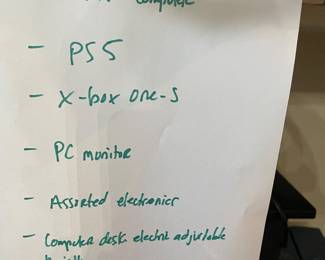 complete
- PS5
- X-box one-S
- PC monitor
- Assorted electronics
- Computer desk electric adjustable